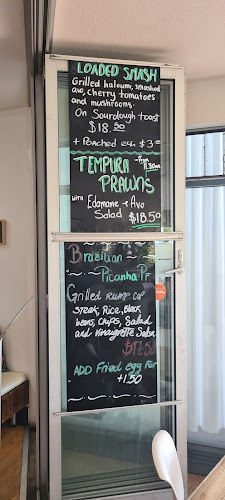 LOADED SMASH
Grilled haloumi, smashed
avo, cherry tomatoes
and mushrooms.
On Sourdough toast
$18.50
+ Poached egg $3.00
TEMPURA From 11.30am
PRAWNS
with Edamame + Avo
Salad $18.50
Brazilian
Picanha Pr.
Grilled Rump cap
steak, Rice, Black
beans, Chips, Salad
and Vinaigrette Salsa
$17.50
ADD Fried egg For
+1.50